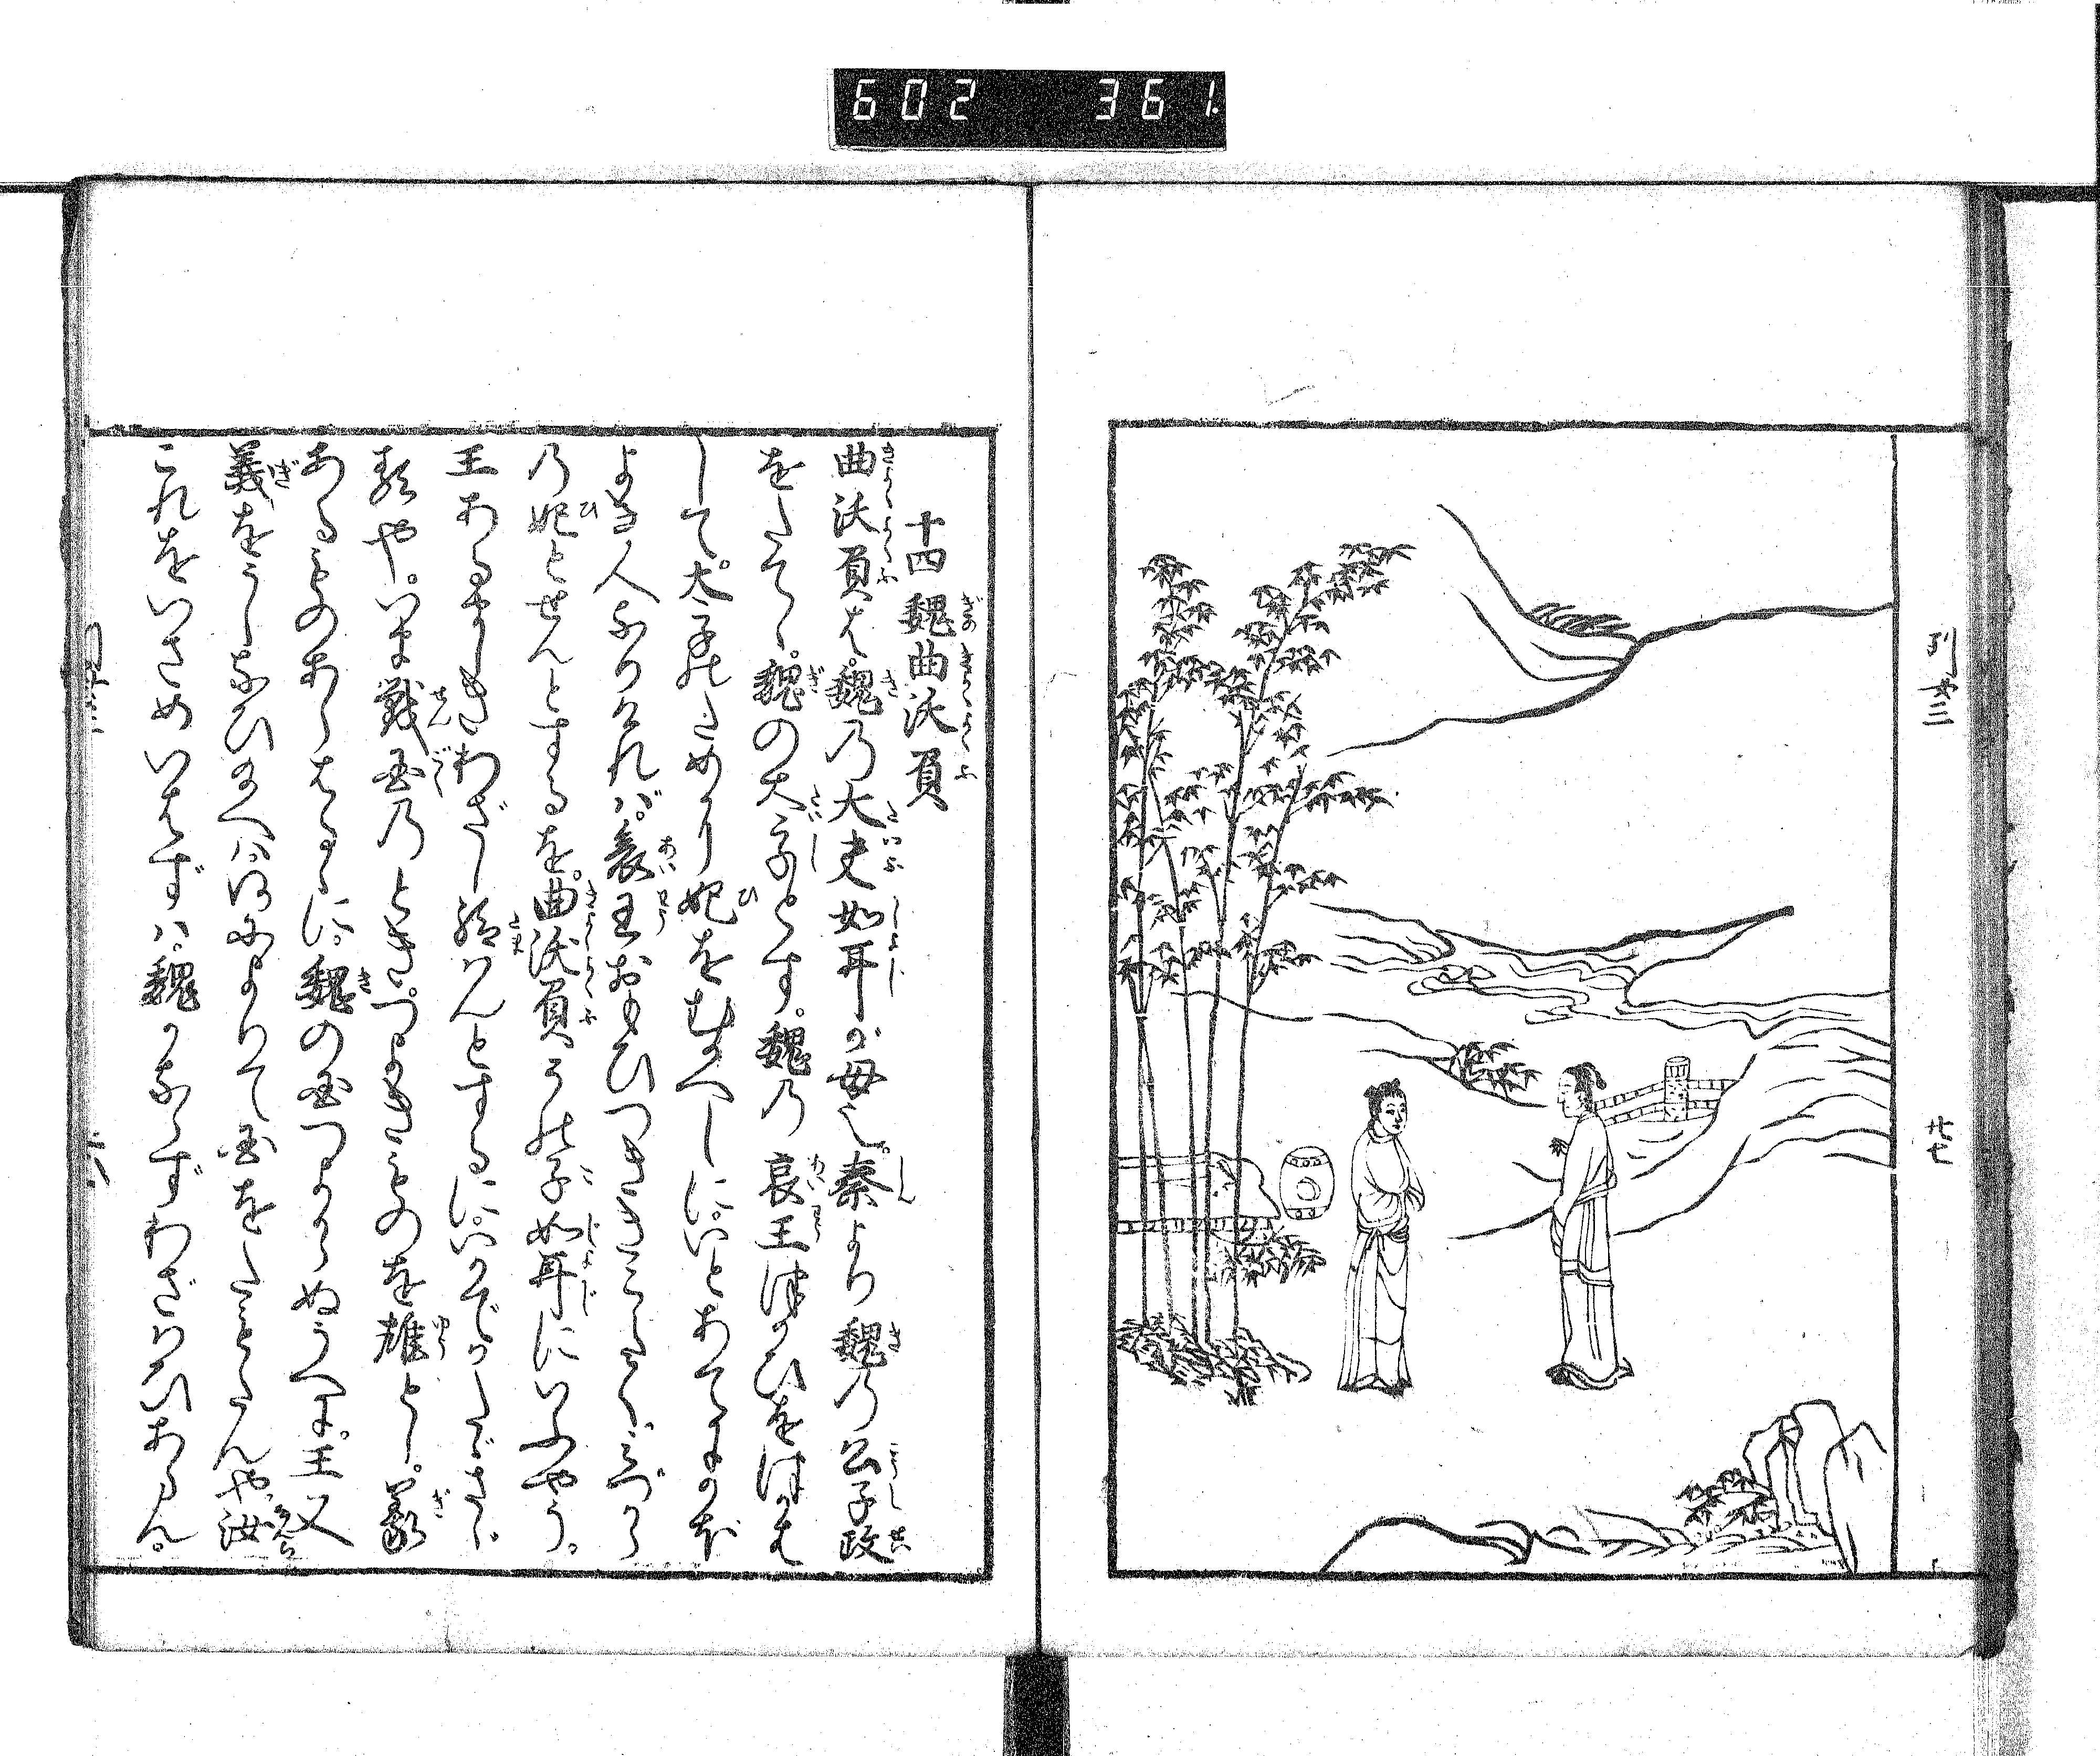 602 361
列女三
廿七
十四 魏曲沃負
曲沃負は。魏乃大夫如耳が母也。秦より魏乃公子政
をたてゝ。魏の太子とす。魏乃哀王使つかひをつかは
して。太子のために妃をむかへしに。いとあてにかほ
よき人なりければ。哀王おもひつききこえて。みづから
乃妃とせんとするを。曲沃負その子如耳にいふやう。
王あるまじきわざし給はんとするに。いかでかたださゞ
るや。いま戦国乃ときつよきものを雄とし。義
あるものあらはるゝに。魏の国つよからぬうへに。王又
義をうしなひ給へば。何によりて国をたもたんや。汝
これをいさめいはずは。魏かならずわざはひあらん。